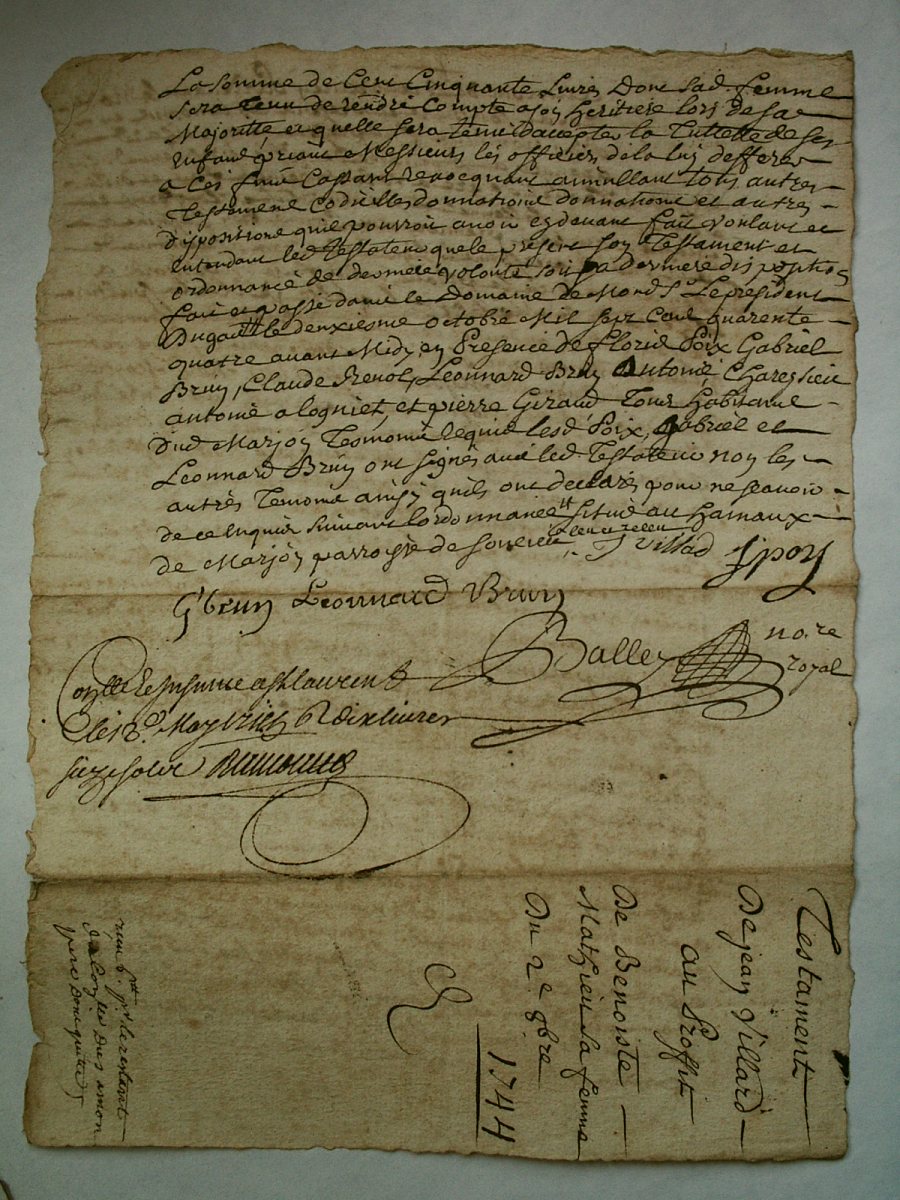 La somme de Cent Cinquante Livres Dont sad. femme
sera tenu de rendre Compte a son heritiere lors de sa
Majoritté et quelle sera tenu daccepter la Tuttelle de ses
Enfans priant Messieurs les officiers de la
a Ces fins Cassant revocquant annullant tous autres
Testament Codicilles donnations donnations et autres
Dispositions quil pourroit avoir cy devant fait voulant et
Entendant led. Testateur que le présent soy Testament et
ordonnance de derniere volonté soit sa derniere disposition
fait et passé dans le Domaine de Mond. Sr. Le president
Dugas le deuxiesme octobre Mil sept Cent quarente
quatre avant Midy en Presence de florie Poix Gabriel
Bruy, Claude Renol, Leonnard Bruy Antoine Chareysieu
antoine alogniet, et pierre Giraud Tous habitans
Dud. Marjoy Tesmoins requis lesd. Poix, Gabriel et
Leonnard Bruy ont signés avec led. Testateur non les
autrés Temoins ainsy quils ont declarés pour ne scavoir
de ce Enquis suivant lordonnance situé au hamaux
de Marjoy parroisse de J Villad Jpoy
G bruy Leonnard Bruy
Balley no.re
royal
Controllé et Insinué a st laurent
le 12e. dix livres
seize sols
Testament
De jean Villard
au Proffit
De Benoiste
Mathieu sa femme
Du 2e 8bre
1744